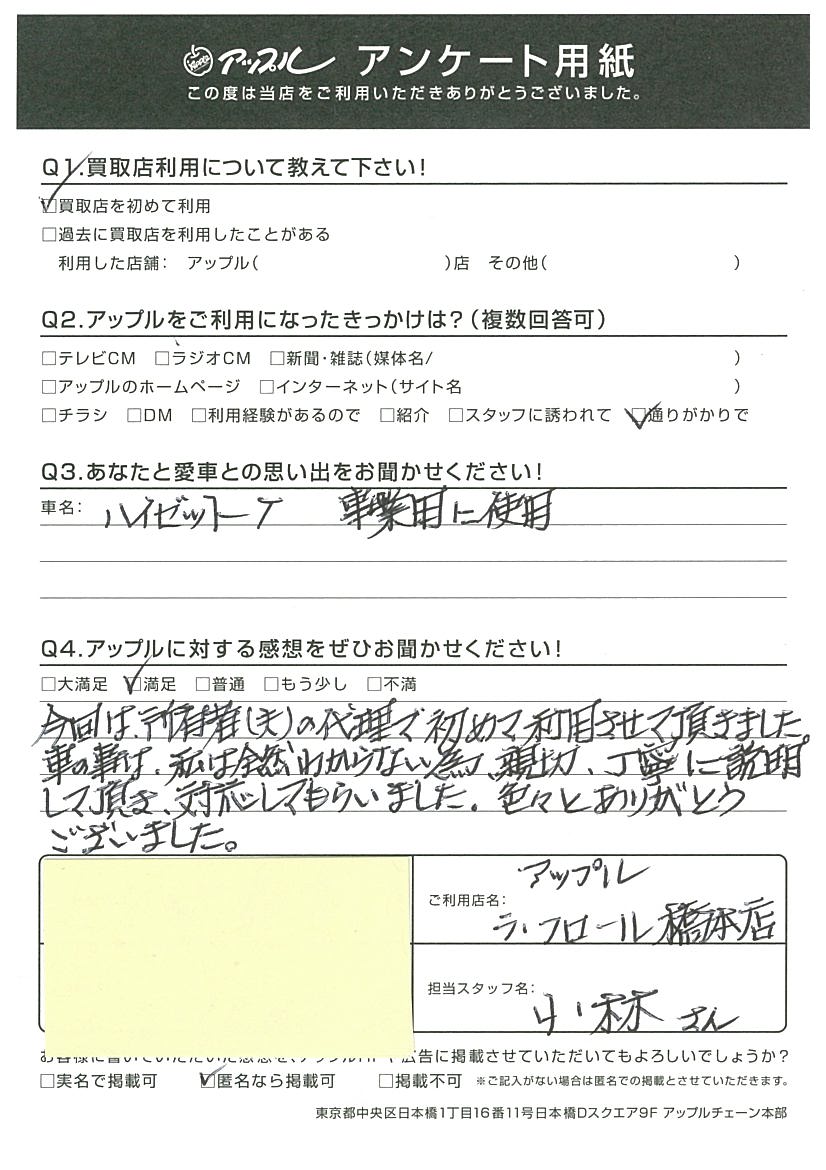 アップル アンケート用紙
この度は当店をご利用いただきありがとうございました。
Q1.買取店利用について教えて下さい!
☑買取店を初めて利用
□過去に買取店を利用したことがある
利用した店舗: アップル( )店 その他( )
Q2.アップルをご利用になったきっかけは?(複数回答可)
□テレビCM □ラジオCM □新聞・雑誌(媒体名/ )
□アップルのホームページ □インターネット(サイト名 )
□チラシ □DM □利用経験があるので □紹介 □スタッフに誘われて ☑通りがかりで
Q3.あなたと愛車との思い出をお聞かせください!
車名: ハイゼット 事業用に使用
Q4.アップルに対する感想をぜひお聞かせください!
□大満足 ☑満足 □普通 □もう少し □不満
今回は、所有者(夫)の代理で初めて利用させて頂きました。
車の事は、私は全然わからない為、親切、丁寧に説明
して頂き、対応してもらいました。色々とありがとう
ございました。
ご利用店名: アップル
ラ・フロール橋本店
担当スタッフ名: 小林 さん
お客様に書いていただいた感想を、アップルHPや広告に掲載させていただいてもよろしいでしょうか?
□実名で掲載可 ☑匿名なら掲載可 □掲載不可 ※ご記入がない場合は匿名での掲載とさせていただきます。
東京都中央区日本橋1丁目16番11号日本橋Dスクエア9F アップルチェーン本部